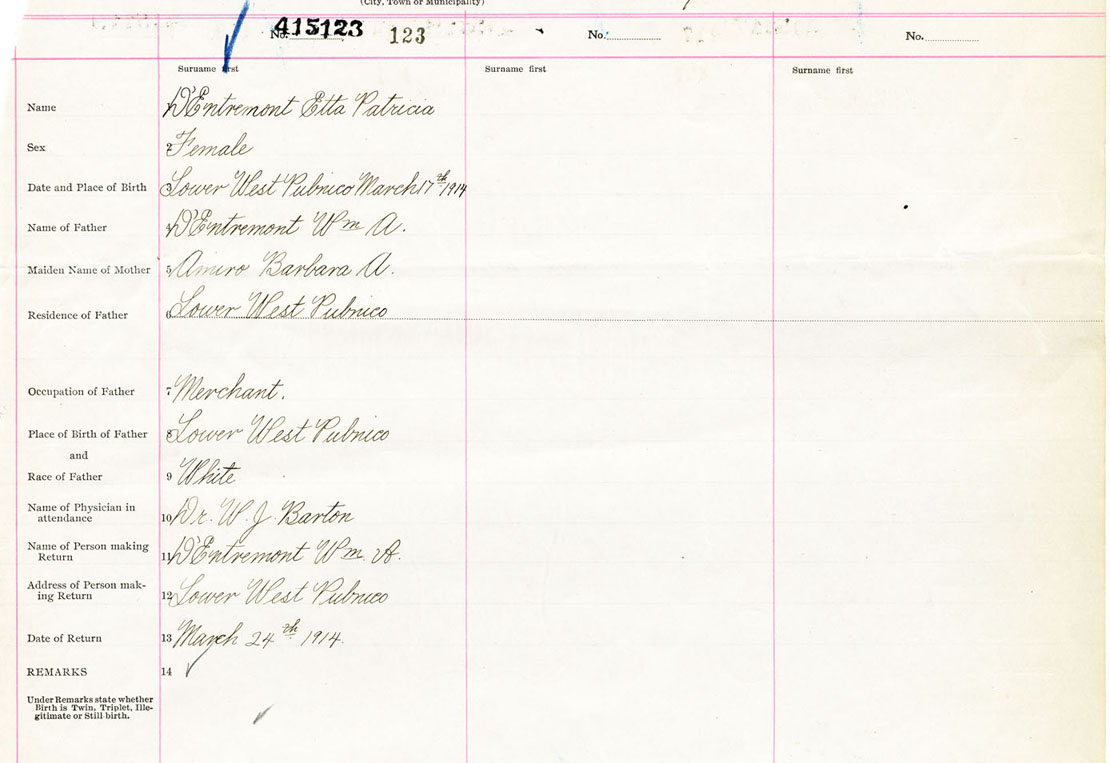 (City, Town or Municipality)
No. 415123 123 No. No.
Surname first Surname first Surname first
Name D'Entremont Etta Patricia
Sex 2 Female
Date and Place of Birth 3 Lower West Pubnico March 17th 1914
Name of Father 4 D'Entremont Wm A.
Maiden Name of Mother 5 Amiro Barbara A.
Residence of Father 6 Lower West Pubnico
Occupation of Father 7 Merchant.
Place of Birth of Father 8 Lower West Pubnico
and
Race of Father 9 White
Name of Physician in
attendance 10 Dr. W. J. Barton
Name of Person making
Return 11 D'Entremont Wm. A.
Address of Person mak-
ing Return 12 Lower West Pubnico
Date of Return 13 March 24th 1914.
REMARKS 14
Under Remarks state whether
Birth is Twin, Triplet, Ille-
gitimate or Still birth.